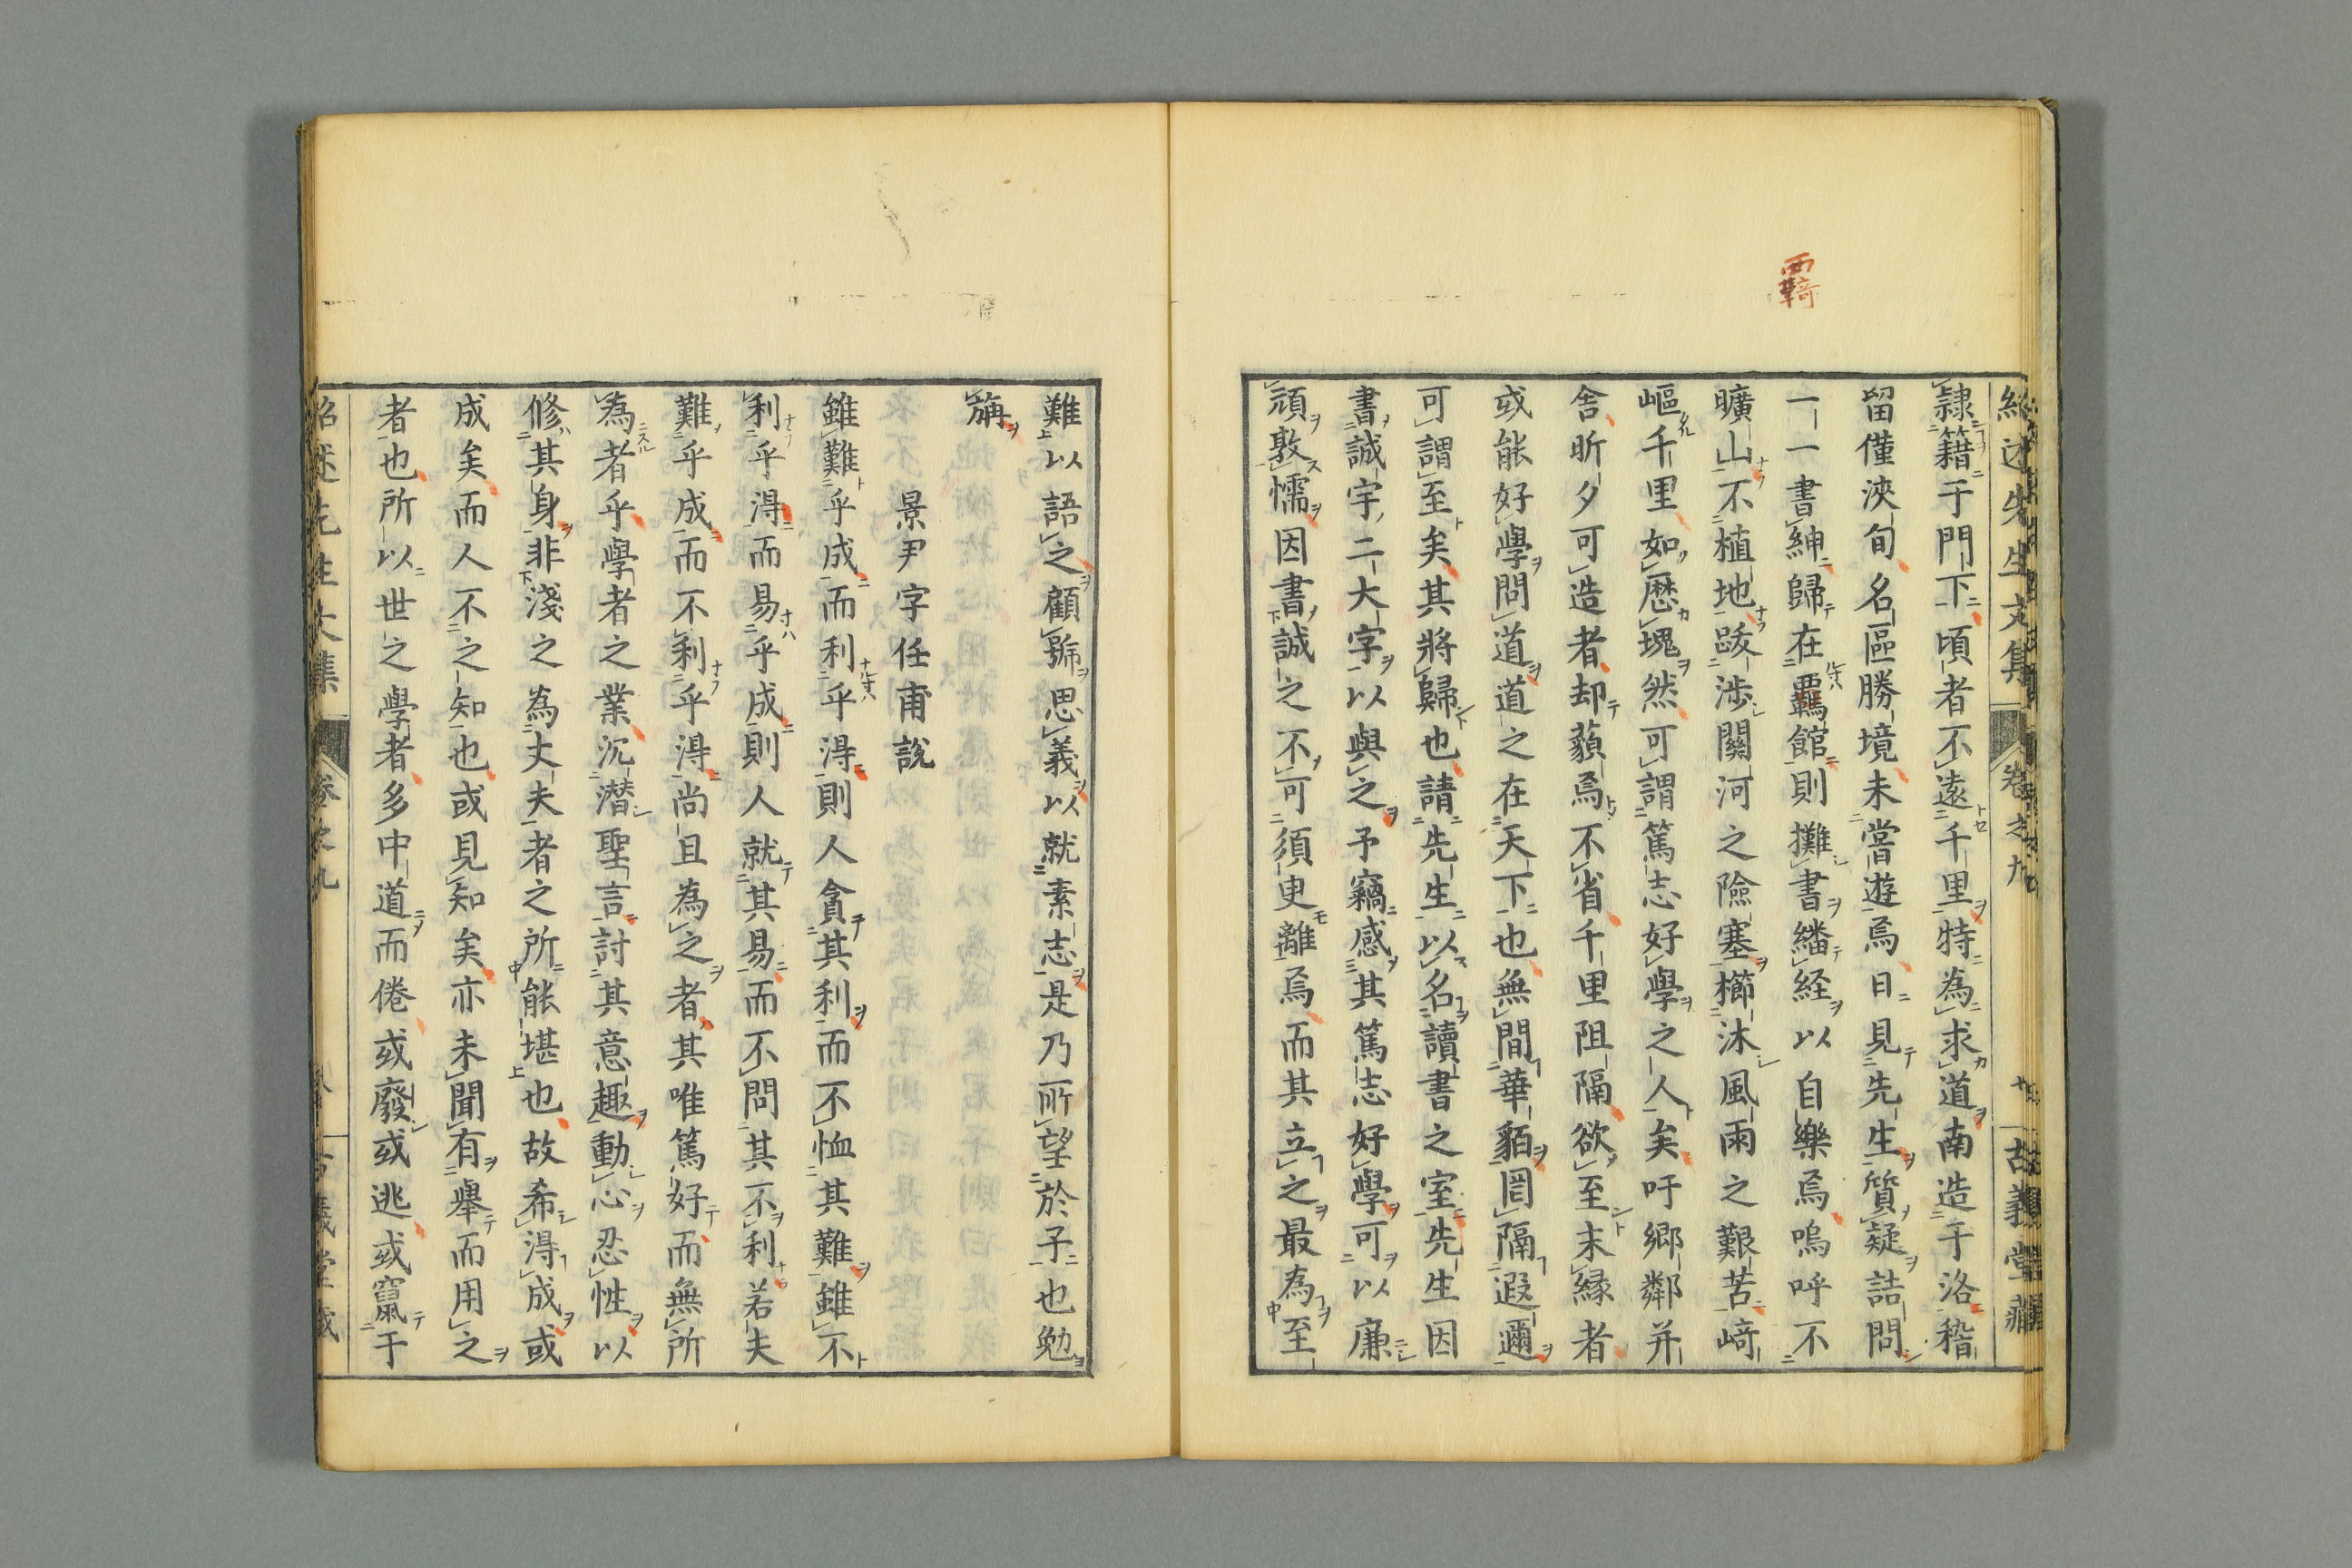 覊
隷籍于門下頃者不遠千里特為求道南造于洛稽
留僅浹旬名區勝境未嘗遊焉日見先生質疑詰問
一一書紳歸在覊館則攤書繙経以自樂焉嗚呼不
曠山不植地跋渉關河之險塞櫛沐風雨之艱苦﨑
嶇千里如歴塊然可謂篤志好學之人矣吁郷鄰并
舎昕夕可造者却藐焉不省千里阻隔欲至末縁者
或能好學問道道之在天下也無間華貊罔隔遐邇
可謂至矣其將歸也請先生以名讀書之室先生因
書誠宇二大字以與之予竊感其篤志好學可以廉
頑敦懦因書誠之不可須臾離焉而其立之最為至
難以語之顧號思義以就素志是乃所望於子也勉
旃
景尹字任甫説
雖難乎成而利乎得則人貪其利而不恤其難雖不
利乎得而易乎成則人就其易而不問其不利若夫
難乎成而不利乎得尚且為之者其唯篤好而無所
為者乎學者之業沉潜聖言討其意趣動心忍性以
修其身非淺之為丈夫者之所能堪也故希得成或
成矣而人不之知也或見知矣亦未聞有舉而用之
者也所以世之學者多中道而倦或廢或逃或竄于
卷之九
古義堂藏